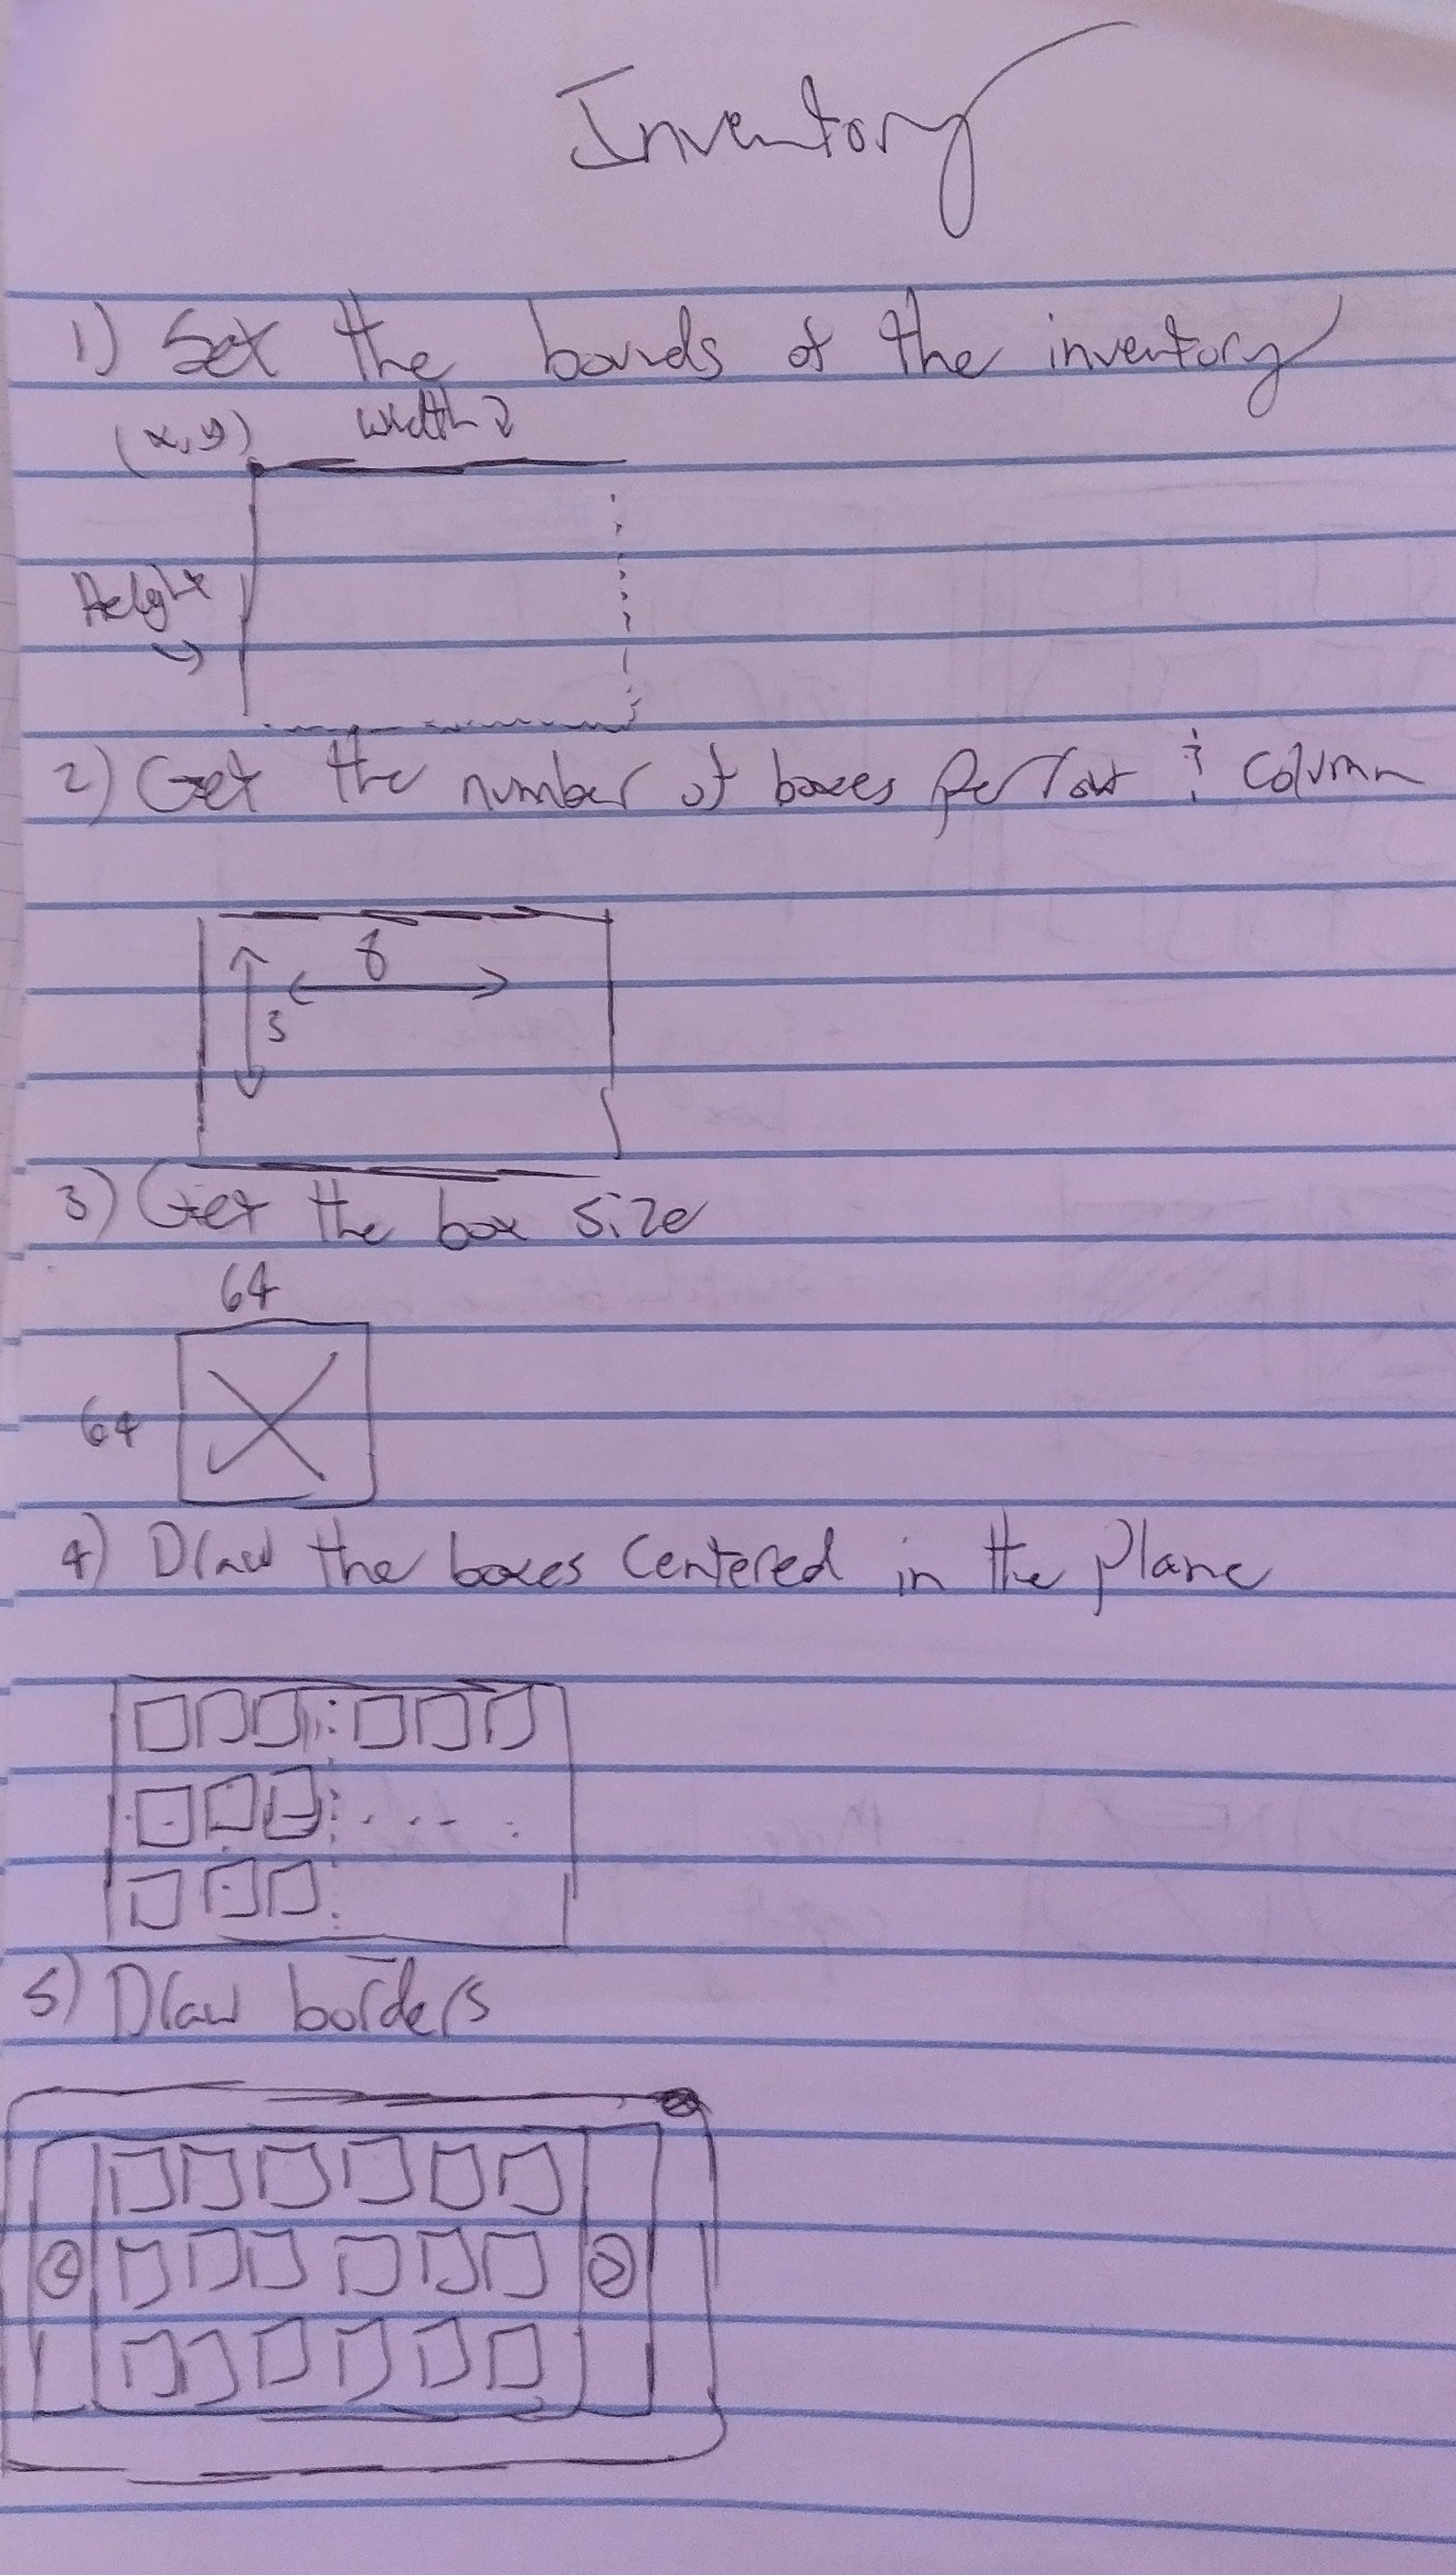 Inventory
1) Set the bounds of the inventory
(x,y) width
Height
2) Get the number of boxes per row & column
3
3) Get the box size
64
64
4) Draw the boxes centered in the plane
5) Draw borders